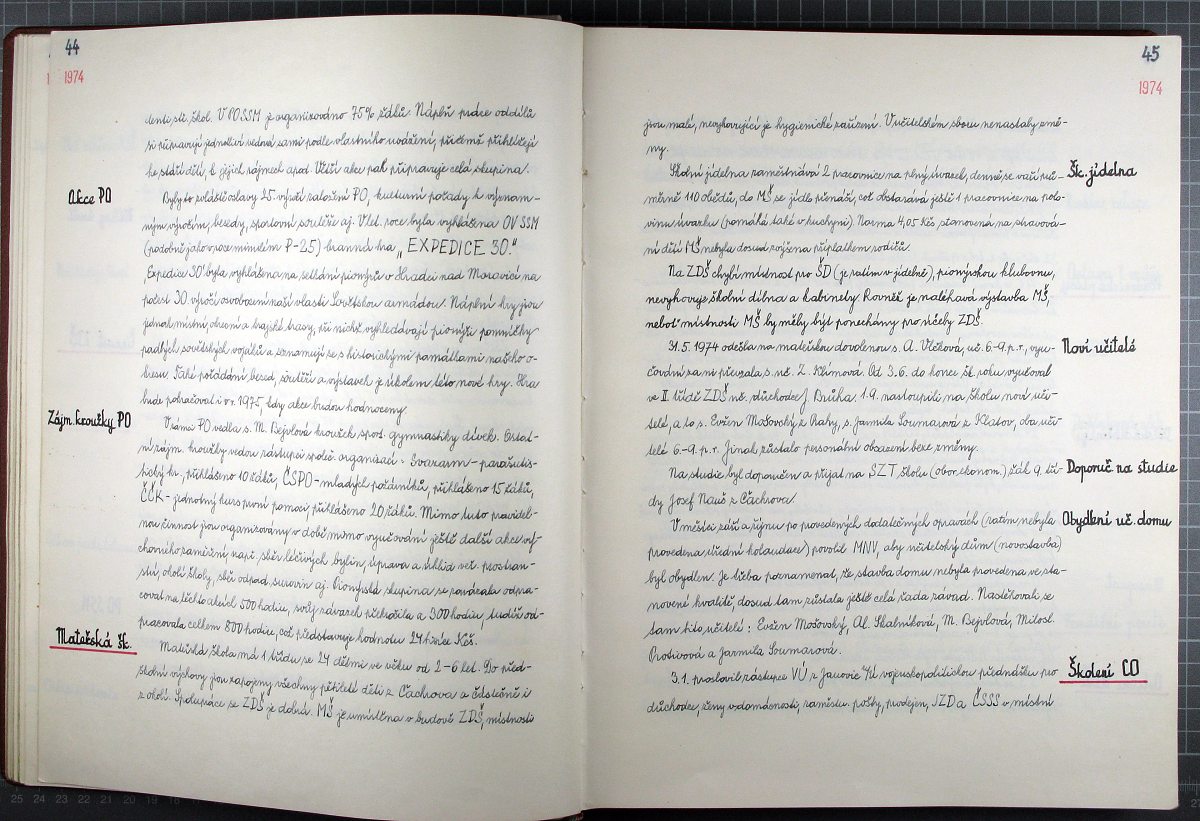 44
1974
denti stř. škol. V PO SSM je organizováno 75% žáků. Náplň práce oddílů
si připravují jednotliví vedoucí sami podle vlastního uvážení, přičemž přihlížejí
ke stáří dětí, k jejich zájmech apod. Větší akce pak připravuje celá skupina.
Akce PO
Byly to zvláště oslavy 25. výročí založení PO, kulturní pořady k význam-
ným výročím, besedy, sportovní soutěže aj. V let. roce byla vyhlášena OV SSM
(podobně jako v roce minulém P-25) branná hra „EXPEDICE 30."
„Expedice 30" byla vyhlášena na setkání pionýrů v Hradci nad Moravicí na
počest 30. výročí osvobození naší vlasti Sovětskou armádou. Náplní hry jsou
jednak místní, okresní a krajské trasy, při nichž vyhledávají pionýři pomníčky
padlých sovětských vojáků a seznamují se s historickými památkami našeho o-
kresu. Také pořádání besed, soutěží a výstavek je úkolem této nové hry. Hra
bude pokračovat i v r. 1975, kdy akce budou hodnoceny.
Zájm. kroužky PO
V rámci PO vedla s. M. Bejvlová kroužek sport. gymnastiky dívek. Ostat-
ní zájm. kroužky vedou zástupci společ. organizací: Svazarm - parašutis-
tický kr., přihlášeno 10 žáků, ČSPO - mladých požárníků, přihlášeno 15 žáků,
ČČK - jednotný kurs první pomoci přihlášeno 20 žáků. Mimo tuto pravidel-
nou činnost jsou organizovány v době mimo vyučování ještě další akce vý-
chovného zaměření, např. sběr léčivých bylin, úprava a úklid veř. prostran-
ství, okolí školy, sběr odpad. surovin aj. Pionýrská skupina se zavázala odpra-
covat na těchto akcích 500 hodin, svůj závazek překročila o 300 hodin, tudíž od-
pracovala celkem 800 hodin, což představuje hodnotu 24 tisíce Kčs.
Mateřská šk.
Mateřská škola má 1 třídu se 24 dětmi ve věku od 2-6 let. Do před-
školní výchovy jsou zapojeny všechny pětileté děti z Čachrova a částečně i
z okolí. Spolupráce se ZDŠ je dobrá. MŠ je umístěna v budově ZDŠ, místnosti
45
1974
jsou malé, nevyhovující je hygienické zařízení. V učitelském sboru nenastaly změ-
ny.
Šk. jídelna
Školní jídelna zaměstnává 2 pracovnice na plný úvazek, denně se vaří prů-
měrně 110 obědů, do MŠ se jídlo přenáší, což obstarává ještě 1 pracovnice na polo-
vinu úvazku (pomáhá také v kuchyni). Norma 4,05 Kčs stanovená na stravová-
ní dětí MŠ nebyla dosud zvýšena příplatkem rodičů.
Na ZDŠ chybí místnost pro ŠD (je zatím v jídelně), pionýrskou klubovnu,
nevyhovuje školní dílna a kabinety. Rovněž je naléhavá výstavba MŠ,
neboť místnosti MŠ by měly být ponechány pro účely ZDŠ.
Noví učitelé
31.5. 1974 odešla na mateřskou dovolenou s. A. Vlčková, uč. 6.-9. p. r., vyu-
čování za ni převzala s. uč. Z. Klímová. Od 3.6. do konce šk. roku vyučoval
ve II. třídě ZDŠ uč. důchodce J. Brůha. 1.9. nastoupili na školu noví uči-
telé, a to s. Evžen Mošovský z Prahy, s. Jarmila Soumarová z Klatov, oba uči-
telé 6.-9. p. r. Jinak zůstalo personální obsazení beze změny.
Doporuč. na studie
Na studie byl doporučen a přijat na SZT školu (obor ekonom.) žák 9. tří-
dy Josef Nauš z Čachrova.
Obydlení uč. domu
V měsíci září a říjnu po provedených dodatečných opravách (zatím nebyla
provedena úřední kolaudace) povolil MNV, aby učitelský dům (novostavba)
byl obydlen. Je třeba poznamenat, že stavba domu nebyla provedena ve sta-
novené kvalitě, dosud tam zůstala ještě celá řada závad. Nastěhovali se
tam tito učitelé: Evžen Mošovský, Al. Skalníková, M. Bejvlová, Milosl.
Protivová a Jarmila Soumarová.
Školení CO
3.1. proslovil zástupce VÚ z Janovic n/Úhl vojenskopolitickou přednášku pro
důchodce, ženy v domácnosti, zaměstn. pošty, prodejen, JZD a ČSSS v místní